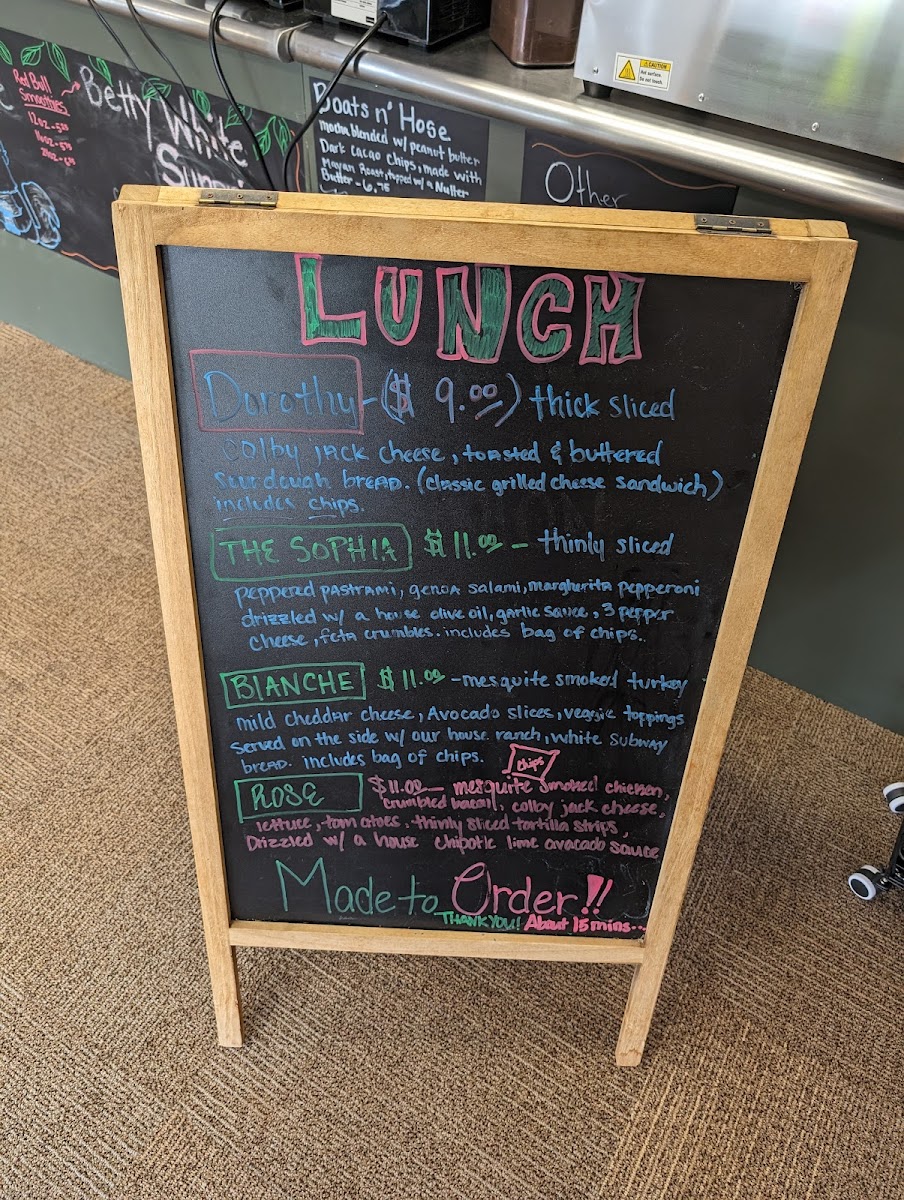 Red Bull
Smoothies
12 oz - 5.25
16 oz - 5.75
24 oz - 6.75
Betty White
Boats n' Hose
mocha blended w/ peanut butter
Dark cacao chips, made with
Mayan Roast, topped w/ a Nutter
Butter - 6.75
Other
CAUTION
Hot surface.
Do not touch.
LUNCH
Dorothy - ($ 9.00) thick sliced
colby jack cheese, toasted & buttered
sourdough bread. (classic grilled cheese sandwich)
includes chips.
THE SOPHIA $11.00 - thinly sliced
peppered pastrami, genoa salami, margherita pepperoni
drizzled w/ a house olive oil, garlic sauce, 3 pepper
cheese, feta crumbles. includes bag of chips..
BLANCHE $11.00 - mesquite smoked turkey
mild cheddar cheese, Avocado slices, veggie toppings
served on the side w/ our house ranch, white subway
bread. includes bag of chips.
chips
ROSE $11.00 - mesquite smoked chicken,
crumbled bacon, colby jack cheese,
lettuce, tomatoes, thinly sliced tortilla strips,
Drizzled w/ a house chipotle lime avacado sauce
Made to Order!!
THANK YOU! About 15 mins...